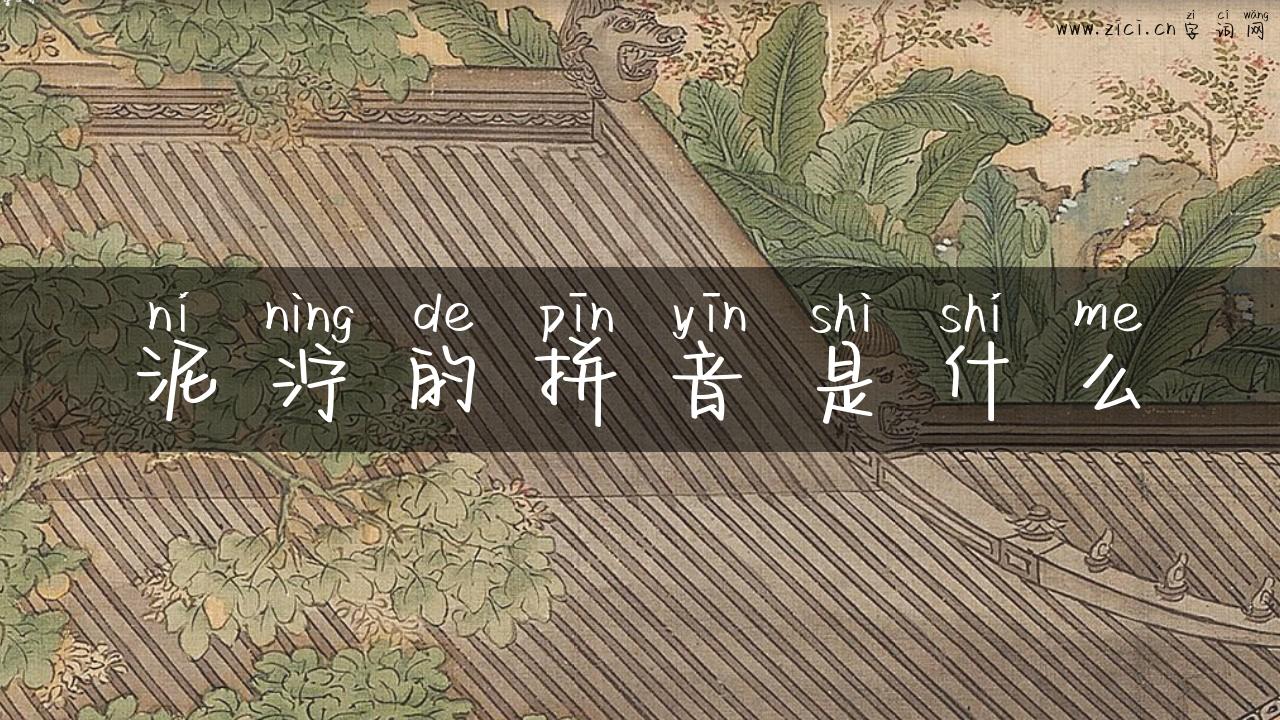 zì cí wǎng
www.zici.cn 字词网
ní nìng de pīn yīn shì shí me
泥泞的拼音是什么